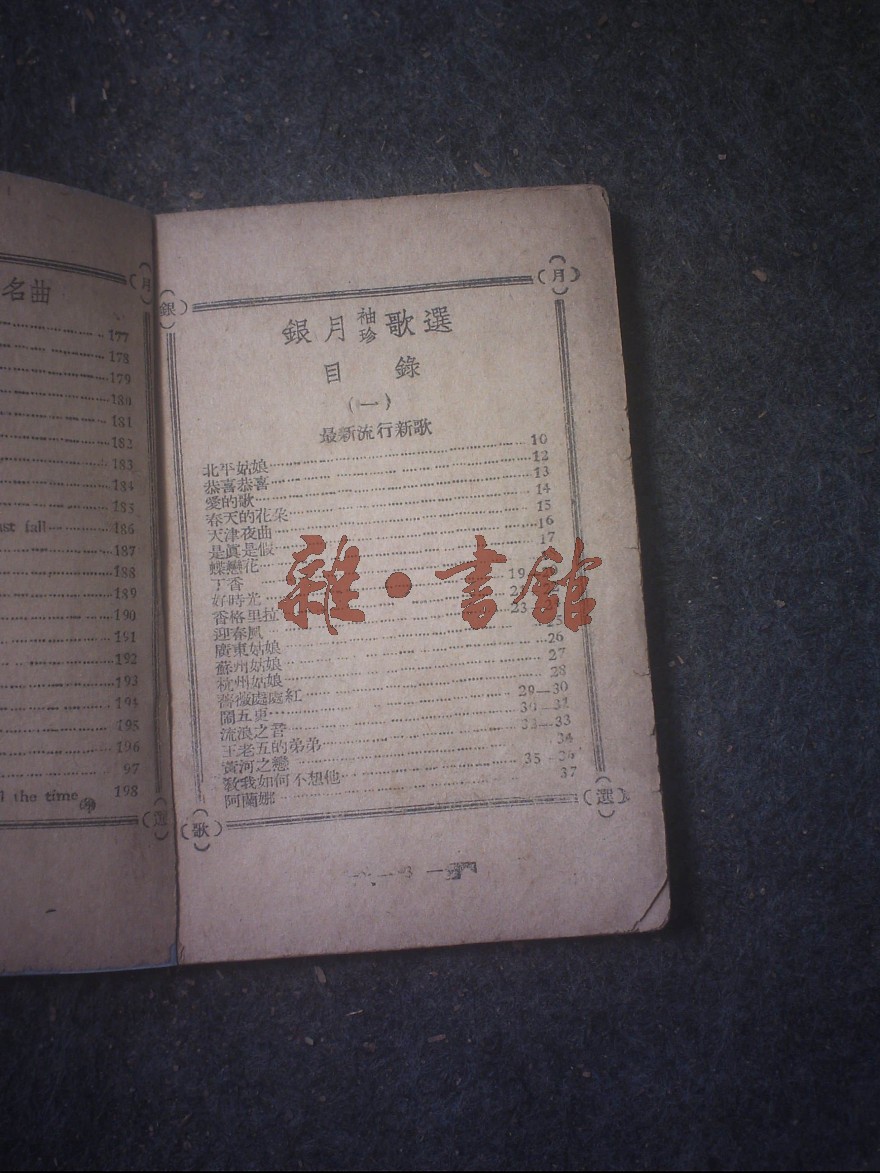 名曲
177
178
179
180
181
182
183
184
185
ast fall 186
187
188
189
190
191
192
193
194
195
196
97
the time 198
銀 月
銀月袖珍歌選
目錄
(一)
最新流行新歌
北平姑娘 10
恭喜恭喜 12
愛的歌 13
春天的花朵 14
天津夜曲 15
是眞是假 16
蝶戀花 17
丁香
好時光 19
香格里拉
迎春風 23
廣東姑娘 25
蘇州姑娘 26
杭州姑娘 27
薔薇處處紅 28
鬧五更 29—30
流浪之
王老五的弟弟
黃河之戀 34
敎我如何不想他 35-36
阿蘭娜 37
歌 選
3
雜·書館